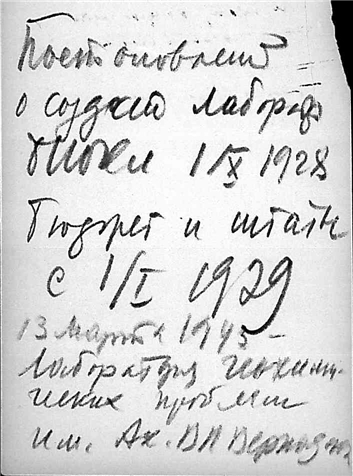 Постановлени
о создани лаборат
биогел 1/X 1928
Бюджет и штаты
с 1/I 1929
13 марта 1943 –
Лаборатория геохими-
ческих проблем
им. Ак. ВИ Вернадск